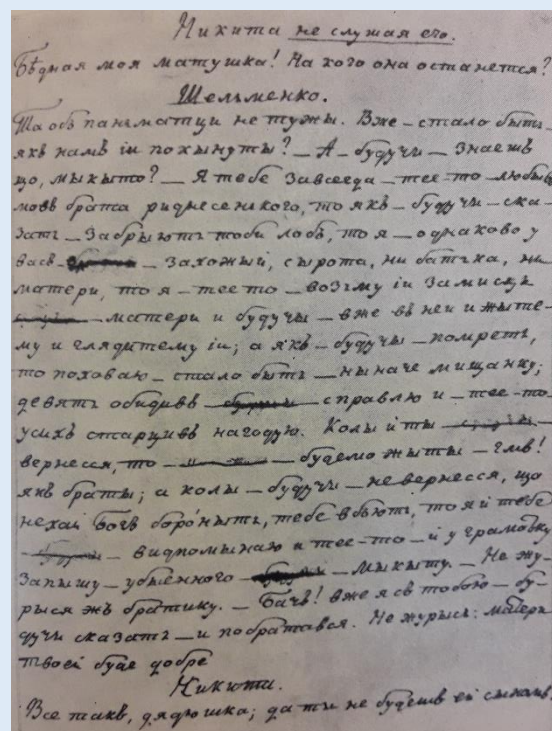 Никита не слушая его.
Бѣдная моя матушка! На кого она останется?
Шельменко.
Та объ паньматци не тужы. Вже – стало быть –
якъ намъ іи покынуты? – А – будучи – знаешь
що, Мыкыто? – Я тебе завсегда – тее-то – любывъ
мовъ брата риднесенького, то якъ – будучи – ска-
зать – забрыють тоби лобъ, то я – однаково у
васъ – захожый, сырота, ни батька, ни
матери, то я – тее то – возьму іи замисць
матери и будучы – вже въ неи и жыте-
му и глядитему іи; а якъ – будучы – помреть,
то поховаю – стало быть – ныначе мищанку;
девять обидивъ справлю и – тее-то
усихъ старцивъ нагодую. Колы й ты
вернесся, то – будемо жыты – гмъ!
якъ браты; а колы – будучи – не вернесся, що
нехай Богъ бороныть, тебе вбьють, то я й тебе
– видпомынаю и тее-то – й у грамотку
запышу – убіенного – Мыкыту. – Не жу-
рыся жъ братику. – Бачъ! вже я съ тобою – бу-
дучи сказать – и побратався. Не журысь: матери
твоей буде добре
Никита.
Все такъ, дядюшка; да ты не будешь ей сыномъ,